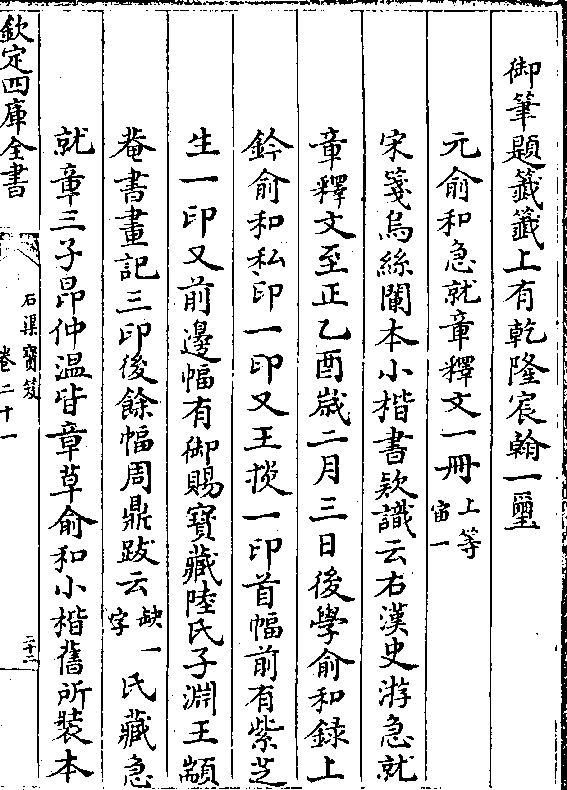 御筆題籤籤上有乾隆宸翰一璽
元俞和急就章釋文一冊上等宙一
宋箋烏絲闌本小楷書款識云右漢史游急就
章釋文至正乙酉歲二月三日後學俞和録上
鈐俞和私印一印又王掞一印首幅前有紫芝
生一印又前邊幅有御賜寶藏陸氏子淵王顓
菴書畫記三印後餘幅周鼎跋云缺字一氏藏急
就章三子昻仲温皆章草俞和小楷舊所裝本
欽定四庫全書
石渠寶笈
卷二十一
二十二